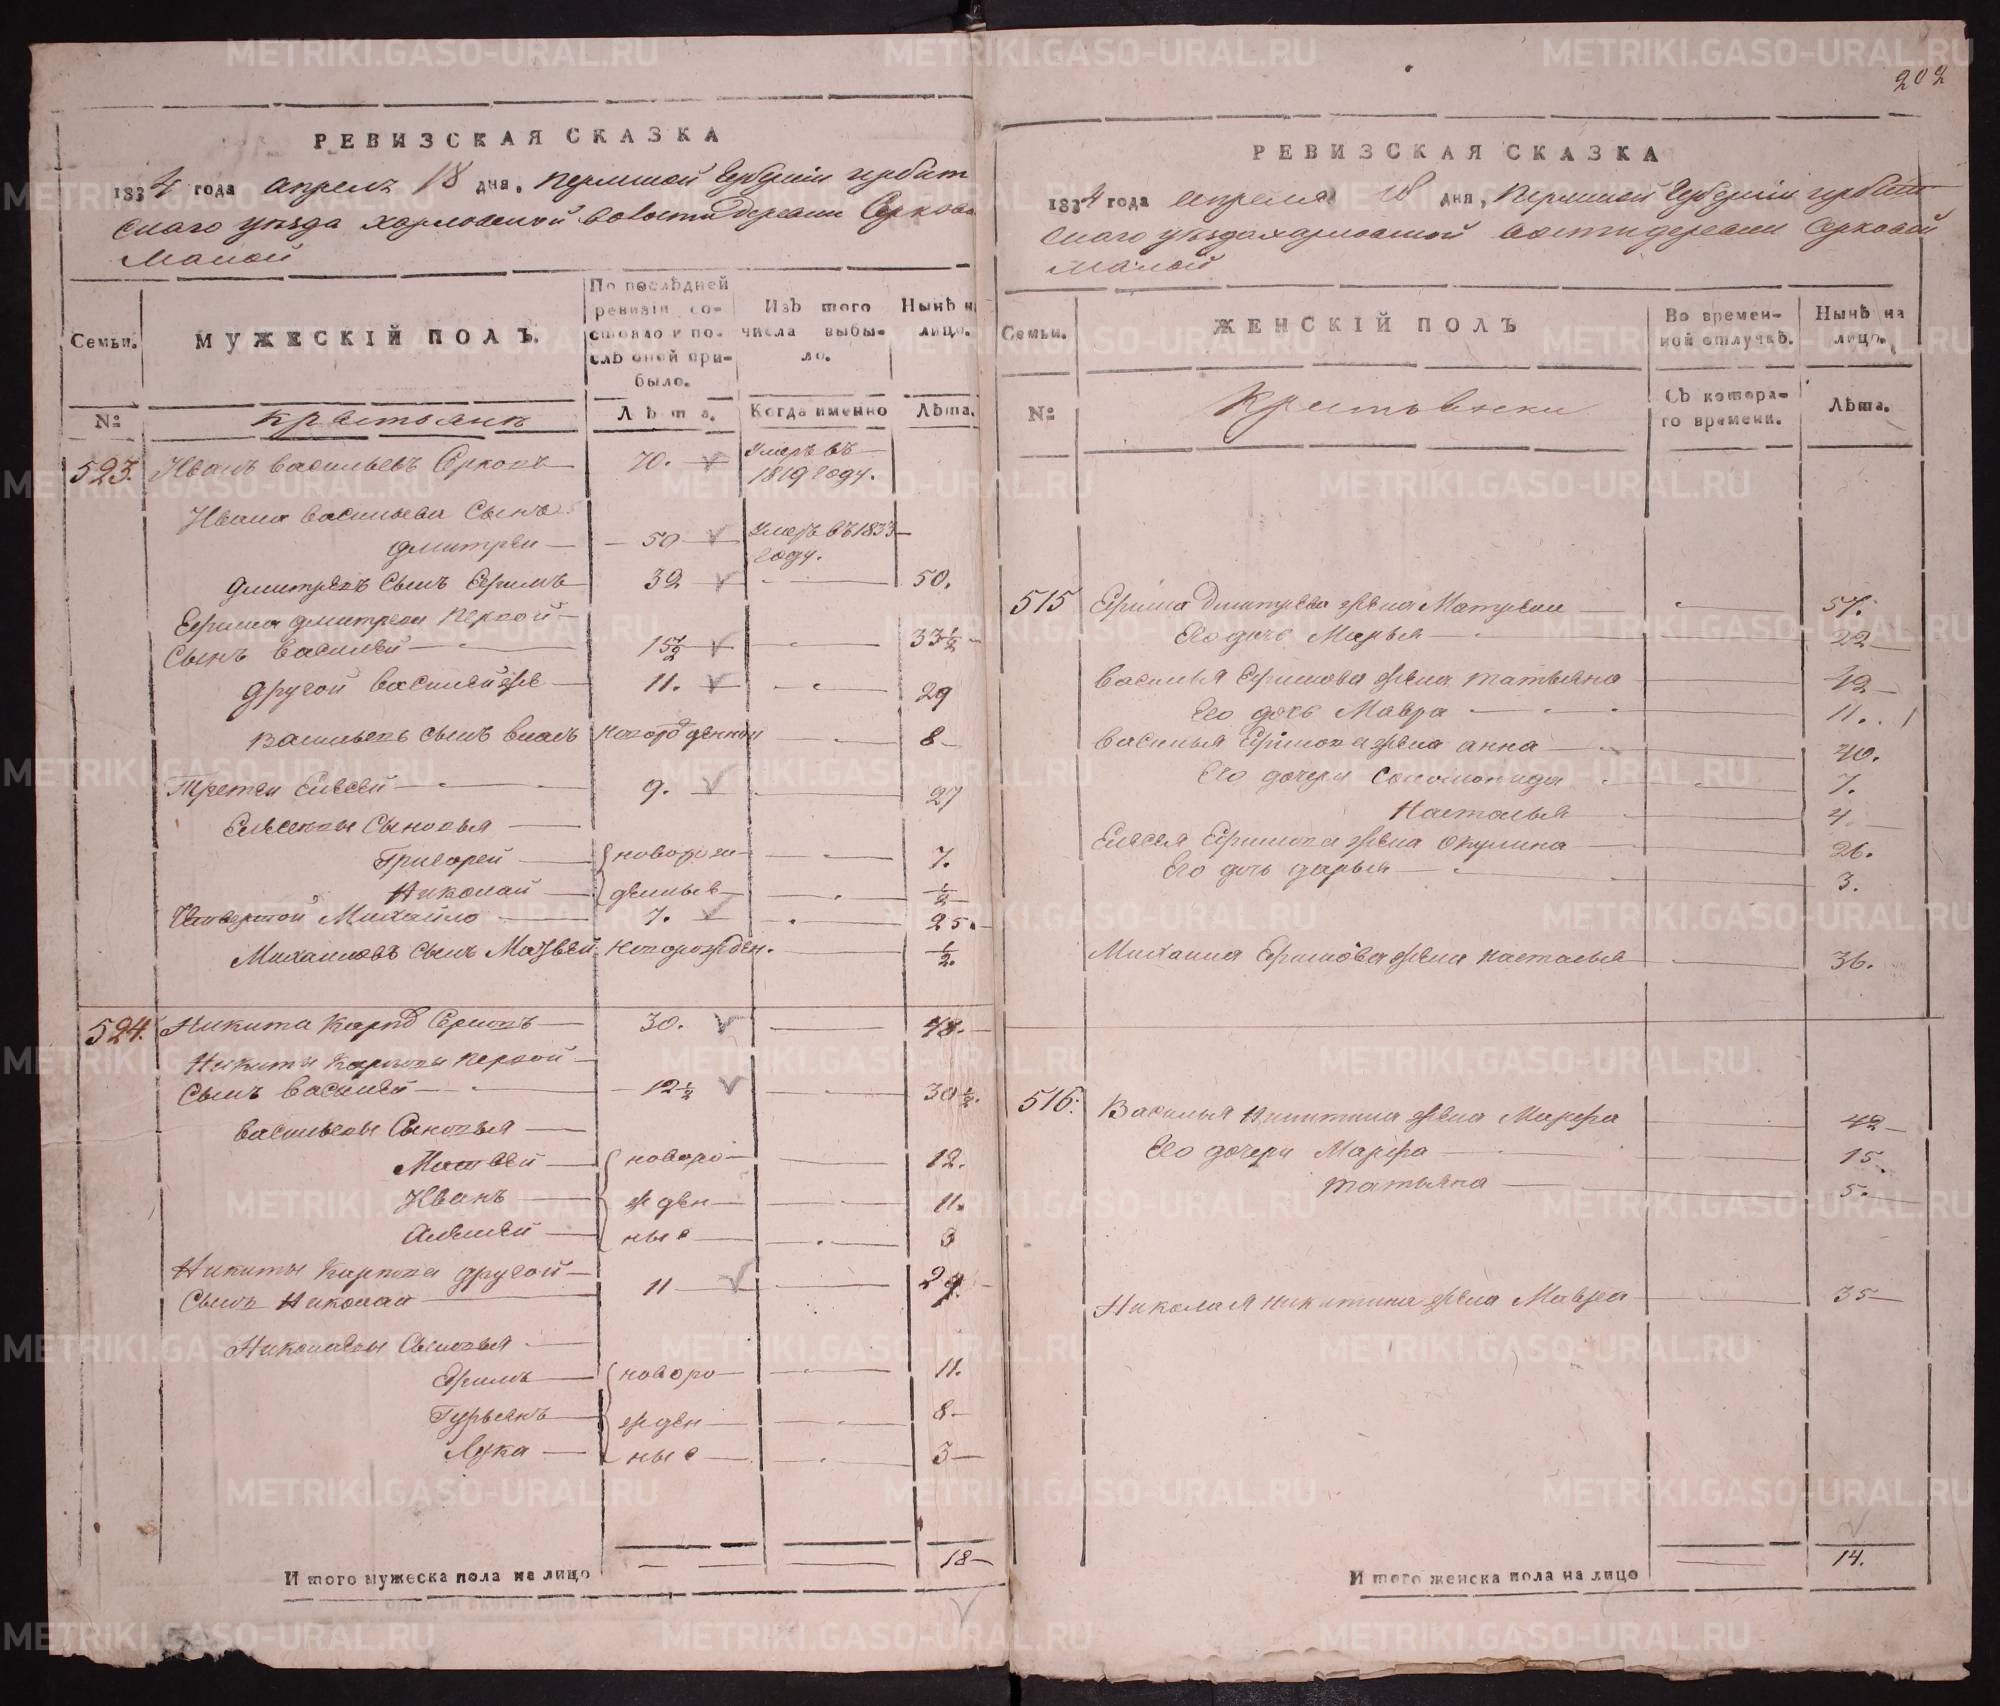 202
РЕВИЗСКАЯ СКАЗКА
1834 года апреля 18 дня, Пермской Губерніи ирбит
скаго уѣзда харловской волости деревни Серкова
Малой
Семьи.
МУЖЕСКІЙ ПОЛЪ.
По послѣдней
ревизіи со-
стояло и по-
слѣ оной при-
было.
Изъ того
числа выбы-
ло.
Нынѣ н
лицо.
№
крестьянъ
Лѣта.
Когда именно
Лѣта.
523. Иванъ васильевъ Серковъ 70. Умеръ въ
1819 году.
Ивана васильева Сынъ
дмитреи 50 Умеръ въ 1833
году.
дмитревъ Сынъ Ефимъ 32 50.
Ефима дмитреви первой
Сынъ василей 15 1/2 33 1/2
другой василей же 11. 29
васильевъ сынъ власъ новорожденной 8
Третеи Елесей 9. 27
Елесеевы Сыновья
Григорей новорож- 7.
Николай денныя 1/2
Четвертой Михайло 7. 25.
Михаиловъ Сынъ Матвей новорожден. 1/2.
524. Никита Карпов Серковъ 30. 48.
Никиты Карпова первой
Сынъ василей 12 1/2 30 1/2.
васильевы Сыновья
Матвей новоро- 12.
Иванъ жден 11.
Алексей ные 3
Никиты Карпова другой
Сынъ Николаи 11 29.
Николаевы Сыновья
Ефимъ новоро- 11.
Гурьянъ жден 8
Лука ные 3
И того мужеска пола на лицо 18
РЕВИЗСКАЯ СКАЗКА
1834 года апреля 18 дня, Пермской Губерніи ирбит
скаго уѣзда харловской волости деревни Серковой
Малой
Семьи.
ЖЕНСКІЙ ПОЛЪ
Во времен-
ной отлучкѣ.
Нынѣ на
лицо.
№
Крестьянски
Съ котора-
го времени.
Лѣта.
515 Ефима дмитрева жена Матрена 57.
Его дочь Марья 22
василья Ефимова жена татьяна 42
Его дочь Мавра 11.
василья Ефимова жена анна 40.
Его дочери Соломонида 7.
Наталья 4
Елесея Ефимова жена окулина 26.
Его дочь дарья 3.
Михаила Ефимова жена наталья 36.
516. Василья Никитина жена Марфа 42
Его дочери Марфа 15.
татьяна 5.
Николая никитина жена Мавра 35
И того женска пола на лицо 14.
METRIKI.GASO-URAL.RU